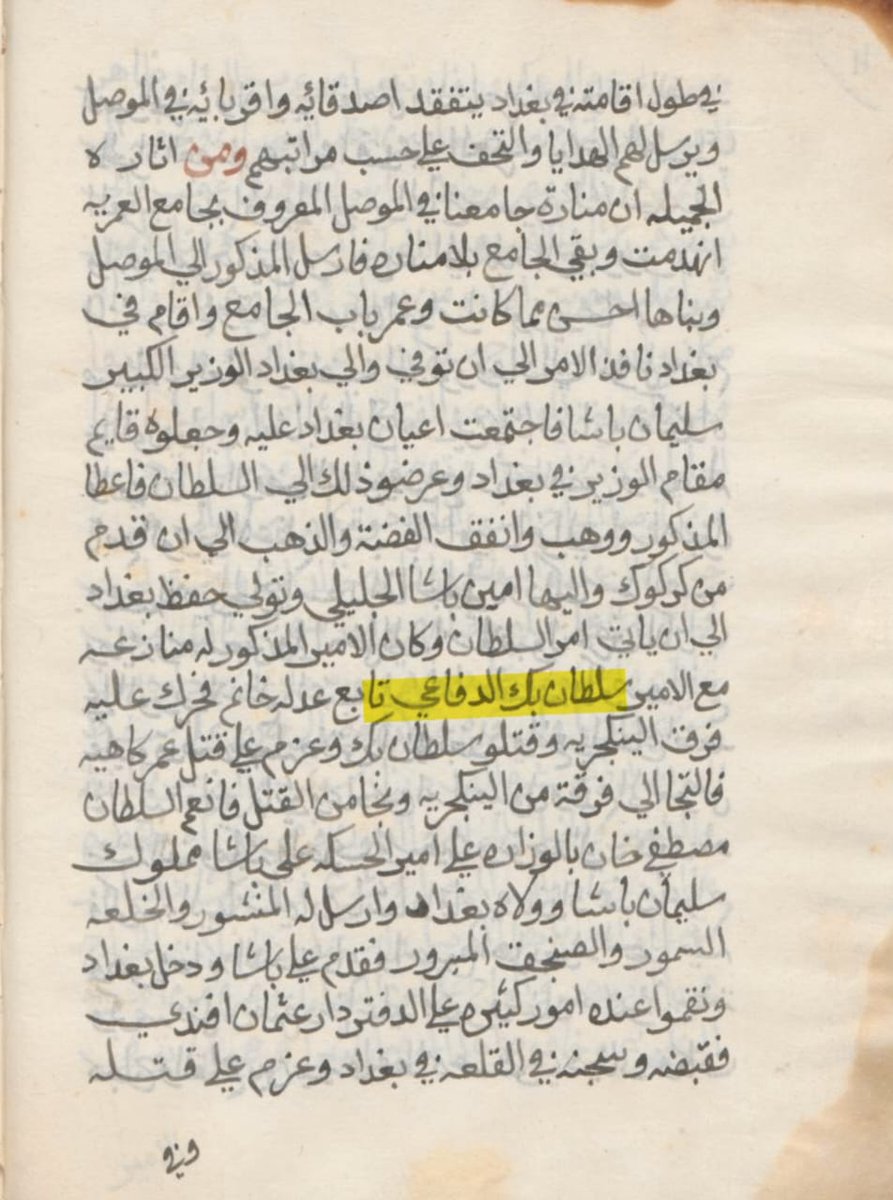 في طول اقامته في بغداد يتفقد اصدقائه واقربائه في الموصل
ويرسل لهم الهدايا والتحف علي حسب مراتبهم ومن اثاره
الجميله ان منارة جامعنا في الموصل المعروف بجامع العريه
انهدمت وبقي الجامع بلا مناره فارسل المذكور الي الموصل
وبناها احسن مما كانت وعمر باب الجامع واقام في
بغداد نافذ الامر الي ان توفي والي بغداد الوزير الكبير
سليمان باشا فاجتمعت اعيان بغداد عليه وجعلوه قايم
مقام الوزير في بغداد وعرضو ذلك الي السلطان فاعطا
المذكور ووهب وانفق الفضة والذهب الي ان قدم
من كركوك واليها امين باشا الجليلي وتولي حفظ بغداد
الي ان ياتي امر السلطان وكان الامير المذكور له منازعه
مع الامير سلطان بك الدفاعي تابع عدله خانم فحرك عليه
فرق الينكجريه وقتلو سلطان بك وعزم علي قتل عمر كاهيه
فالتجا الي فرقة من الينكجريه ونجا من القتل فانعم السلطان
مصطفي خان بالوزاره علي امير الحسكه علي باشا مملوك
سليمان باشا وولاه بغداد وارسل له المنشور والخلعه
السمور والصنجق المبرور فقدم علي باشا ودخل بغداد
ونقموا عنده امور كثيره علي الدفتردار عثمان افندي
فقبضه وسجنه في القلعه في بغداد وعزم علي قتله
وفي